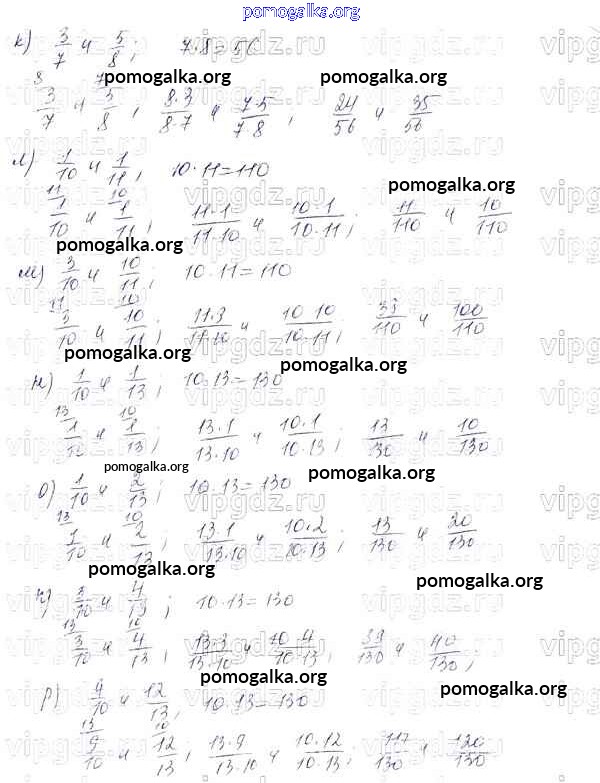 pomogalka.org
к) 3/7 и 5/8; 7·8=56
vipgdz.ru
pomogalka.org
8 7
3/7 и 5/8, 8·3/8·7 и 7·5/7·8, 24/56 и 35/56
vipgdz.ru
л) 1/10 и 1/11, 10·11=110
vipgdz.ru
pomogalka.org
11 10
1/10 и 1/11; 11·1/11·10 и 10·1/10·11; 11/110 и 10/110
pomogalka.org
м) 3/10 и 10/11; 10·11=110
vipgdz.ru
11 10
3/10 и 10/11; 11·3/11·10 и 10·10/10·11; 33/110 и 100/110
pomogalka.org
pomogalka.org
н) 1/10 и 1/13; 10·13=130
vipgdz.ru
13 10
1/10 и 1/13; 13·1/13·10 и 10·1/10·13; 13/130 и 10/130
pomogalka.org
pomogalka.org
о) 1/10 и 2/13; 10·13=130
vipgdz.ru
13 10
1/10 и 2/13; 13·1/13·10 и 10·2/10·13; 13/130 и 20/130
pomogalka.org
pomogalka.org
п) 3/10 и 4/13; 10·13=130
vipgdz.ru
13 10
3/10 и 4/13; 13·3/13·10 и 10·4/10·13; 39/130 и 40/130;
pomogalka.org
pomogalka.org
р) 9/10 и 12/13; 10·13=130
vipgdz.ru
13 10
9/10 и 12/13; 13·9/13·10 и 10·12/10·13; 117/130 и 120/130